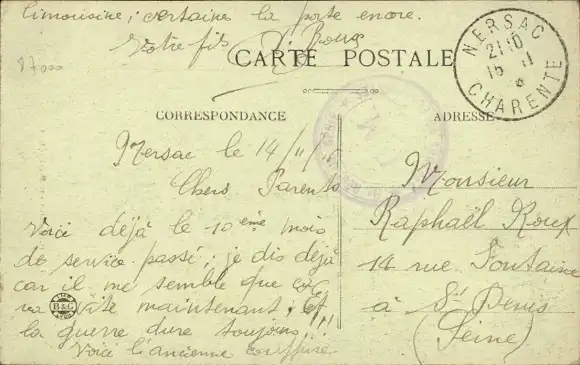 limousine; certaine la porte encore.
Votre fils
87000
CARTE POSTALE
NERSAC
21 10
15 11
CHARENTE
CORRESPONDANCE
ADRESSE
Nersac le 14/11/15
Chers Parents
Voici déjà le 10ème mois
de service passé; je dis déjà
car il me semble que ça
va vite maintenant; Et
la guerre dure toujours!!!
Voici l'ancienne coiffure
B&G
Monsieur
Raphaël Roux
14 rue Fontaine
à St Denis
(Seine)